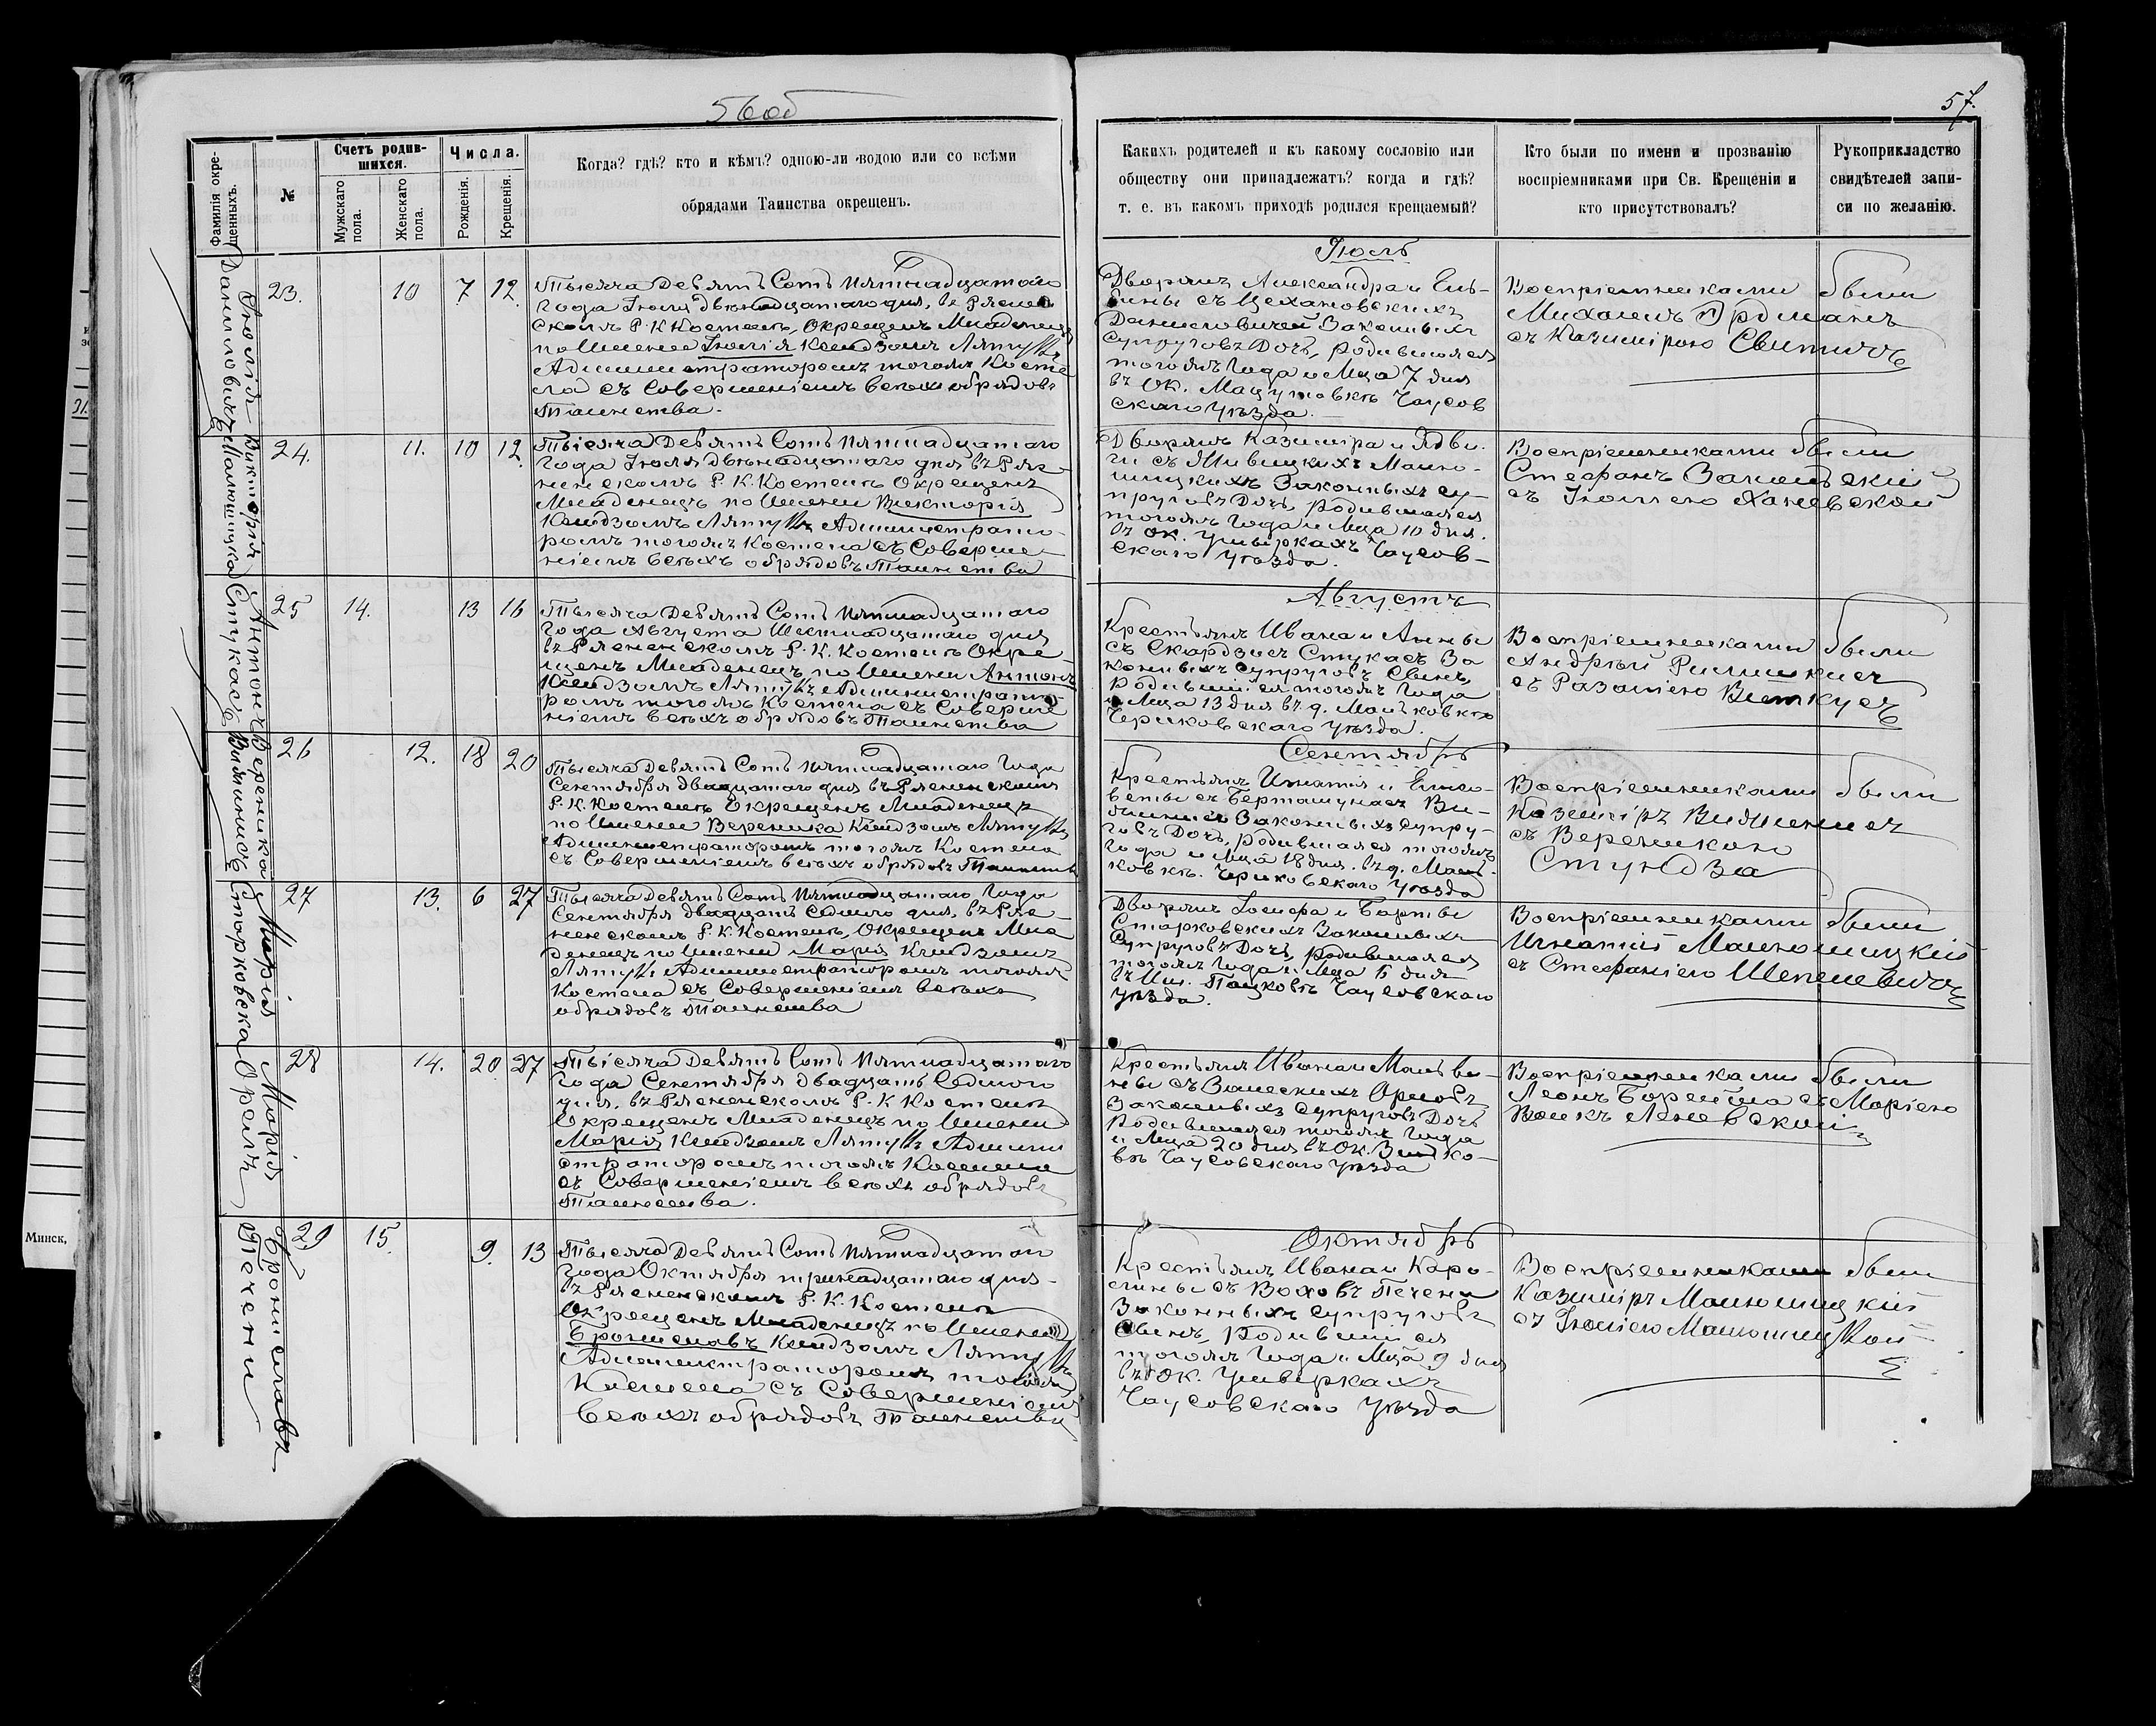 56 об
57.
Фамилія окре-
щенныхъ.
№
Счетъ родив-
шихся.
Мужскаго
пола.
Женскаго
пола.
Числа.
Рожденія.
Крещенія.
Когда? гдѣ? кто и кѣмъ? одною-ли водою или со всѣми
обрядами Таинства окрещенъ.
Какихъ родителей и къ какому сословію или
обществу они принадлежатъ? когда и гдѣ?
т. е. въ какомъ приходѣ родился крещаемый?
Кто были по имени и прозванію
воспріемниками при Св. Крещеніи и
кто присутствовалъ?
Рукоприкладство
свидѣтелей запи-
си по желанію.
Юлія
Даниловичъ
23. 10 7 12
Тысяча Девятъ Сотъ пятнадцатаго
Года Іюля двѣнадцатаго дня, въ Ряснен
скомъ Р. К Костелѣ, Окрещенъ Младенецъ
по Имени Юлія Ксендзомъ Лятукъ
Администраторомъ тогожъ Косте
ла съ Совершеніемъ всѣхъ обрядовъ
Таинства.
Іюль
Дворянъ Александра и Ель-
съ Цехановскихъ
Даниловичей Законныхъ
Супруговъ Дочь, родившаяся
тогожъ Года и Мца 7 дня
въ Ок. Мацутовкѣ Чаусов
скаго Уѣзда.
Воспріемниками были
Михаилъ Эрдманъ
съ Казимірою Свитичъ
Викторія
Малюшицка
24. 11. 10 12
Тысяча Девятъ Сотъ Пятнадцатаго
Года Іюля двѣнадцатаго дня въ Ряс-
ненскомъ Р. К. Костелѣ Окрещенъ
Младенецъ по Имени Викторія
Ксендзомъ Лятукъ Администрато-
ромъ тогожъ Костела съ Соверше-
ніемъ всѣхъ обрядовъ Таинства
Дворянъ Казиміра и Ядви-
ги съ Малю-
шицкихъ Законныхъ су-
пруговъ Дочь, родившаяся
тогожъ Года и Мца 10 дня.
въ Ок. Чаусов-
скаго Уѣзда.
Воспріемниками были
Стефанъ
съ Юліею Ханевской
Антонъ
Стукасъ
25 14. 13 16
Тысяча Девятъ Сотъ Пятнадцатаго
Года Августа Шестнадцатаго дня
въ Рясненскомъ Р. К. Костелѣ Окре-
щенъ Младенецъ по Имени Антонъ
Ксендзомъ Лятукъ Администрато-
ромъ тогожъ Костела съ Соверше
ніемъ всѣхъ обрядовъ Таинства
Августъ
Крестьянъ Ивана и Анны
съ Скардзисъ Стукасъ За
конныхъ Супруговъ Сынъ,
Родившійся тогожъ Года
и Мца 13 дня въ д. Маньковкѣ
Чериковскаго Уѣзда.
Воспріемниками были
Андрей
съ Розаліею Виткусъ
Вероника
26 12. 18 20
Тысяча Девятъ Сотъ пятнадцатаго Года
Сентября двадцатаго дня въ Рясненскомъ
Р. К. Костелѣ Окрещенъ Младенецъ
по Имени Вероника Ксендзомъ Лятукъ
Администраторомъ тогожъ Костела
съ Совершеніемъ всѣхъ обрядовъ Таинства
Сентябрь
Крестьянъ Игнатія и Елиса-
веты съ
Законныхъ Супру-
говъ Дочь, родившаяся тогожъ
Года и Мца 18 дня. въ д. Мань-
ковкѣ. Чериковскаго Уѣзда
Воспріемниками были
Казиміръ
съ Вероникою
Стундза
Марія
Старковска
27 13. 6 27
Тысяча Девятъ Сотъ Пятнадцатаго Года
Сентября двадцать Седмого дня, въ Ряс-
ненскомъ Р. К. Костелѣ, Окрещенъ Мла
денецъ по Имени Марія Ксендзомъ
Лятукъ Администраторомъ тогожъ
Костела съ Совершеніемъ всѣхъ
обрядовъ Таинства
Дворянъ Іосифа и
Старковскихъ Законныхъ
Супруговъ Дочь, родившаяся
тогожъ Года и Мца 6 дня
въ Им. Пацковѣ Чаусовскаго
Уѣзда.
Воспріемниками были
Игнатій Малюшицкій
съ Стефаніею Шепелевичъ
Марія
Орелъ
28 14. 20 27
Тысяча Девятъ Сотъ Пятнадцатаго
Года Сентября двадцать Седмого
дня, въ Рясненскомъ Р. К Костелѣ
Окрещенъ Младенецъ по Имени
Марія Ксендзомъ Лятукъ Админи
страторомъ тогожъ Костела
съ Совершеніемъ всѣхъ обрядовъ
Таинства.
Крестьянъ Ивана и Мальви-
ны съ Орловъ
Законныхъ Супруговъ Дочь
Родившаяся тогожъ Года
и Мца 20 дня въ Ок.
Чаусовскаго Уѣзда
Воспріемниками были
Леонъ съ Маріею
Брониславъ
Печени
29 15. 9. 13
Тысяча Девятъ Сотъ Пятнадцатаго
Года Октября тринадцатаго дня-
въ Рясненскомъ Р. К. Костелѣ
Окрещенъ Младенецъ по Имени
Брониславъ Ксендзомъ Лятукъ
Администраторомъ тогожъ
Костела съ Совершеніемъ
всѣхъ обрядовъ Таинства
Октябрь
Крестьянъ Ивана и Каро-
лины съ Печени
Законныхъ Супруговъ
Сынъ, Родившійся
тогожъ Года и Мца 9 дня
въ Ок.
Чаусовскаго Уѣзда
Воспріемниками были
Казиміръ Малюшицкій
съ Юліею Малюшицкой
Минск,